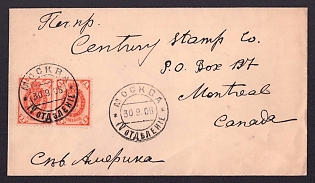 Петр.
Century Stamp Co.
P.O. Box 197
Montreal
Canada
Сѣв. Америка
МОСКВА
30.9.06
IV ОТДѢЛЕНIЕ
МОСКВА
30.9.06
IV ОТДѢЛЕНIЕ